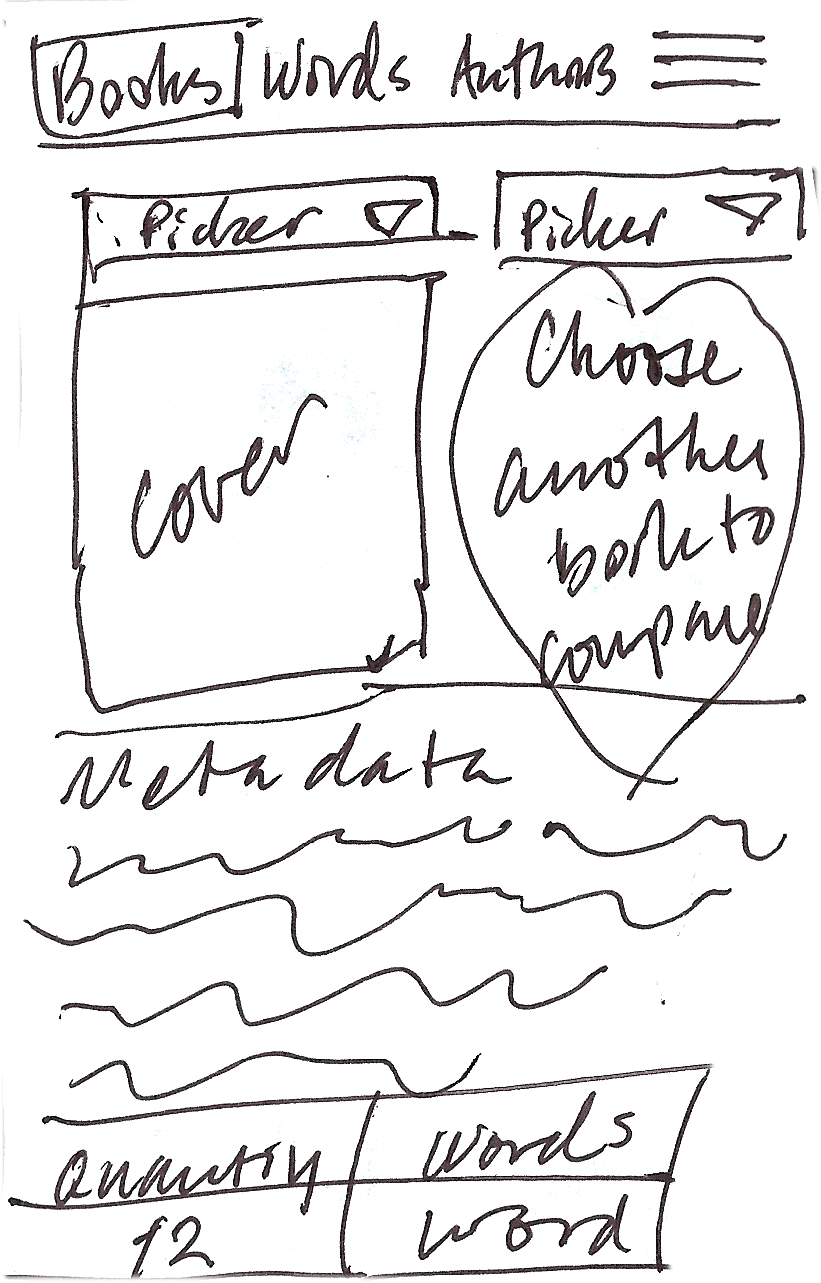 Books Words Authors
Picker Picker
Cover
Choose
another
book to
compare
Metadata
Quantity Words
12 word